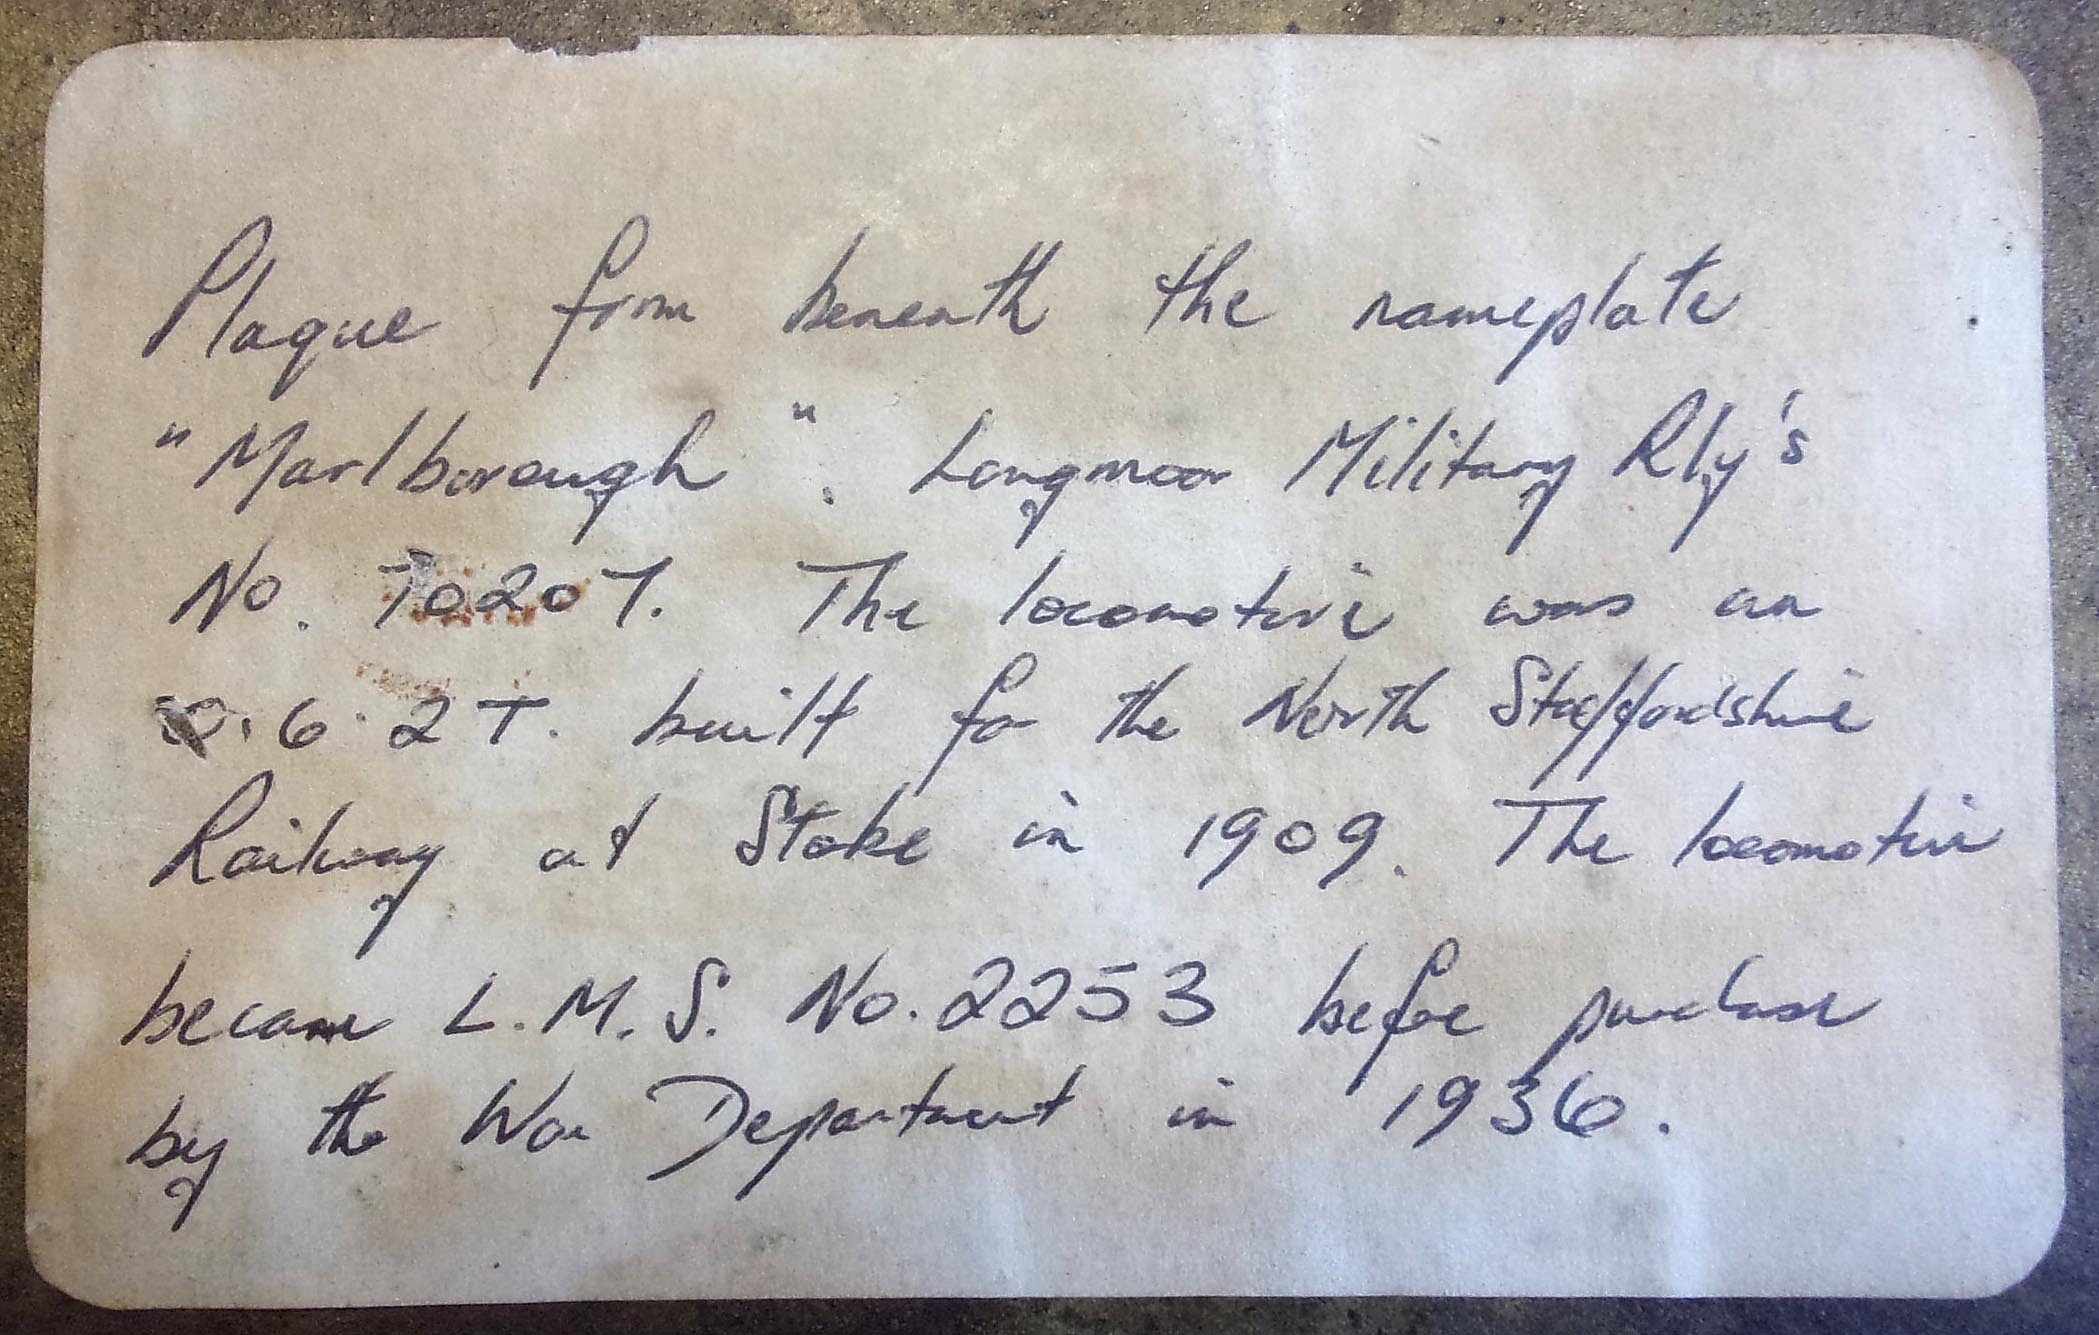 Plaque from beneath the nameplate
"Marlborough". Longmoor Military Rly's
No. 70207. The locomotive was an
0.6.2T. built for the North Staffordshire
Railway at Stoke in 1909. The locomotive
became L.M.S. No.2253 before purchase
by the War Department in 1936.